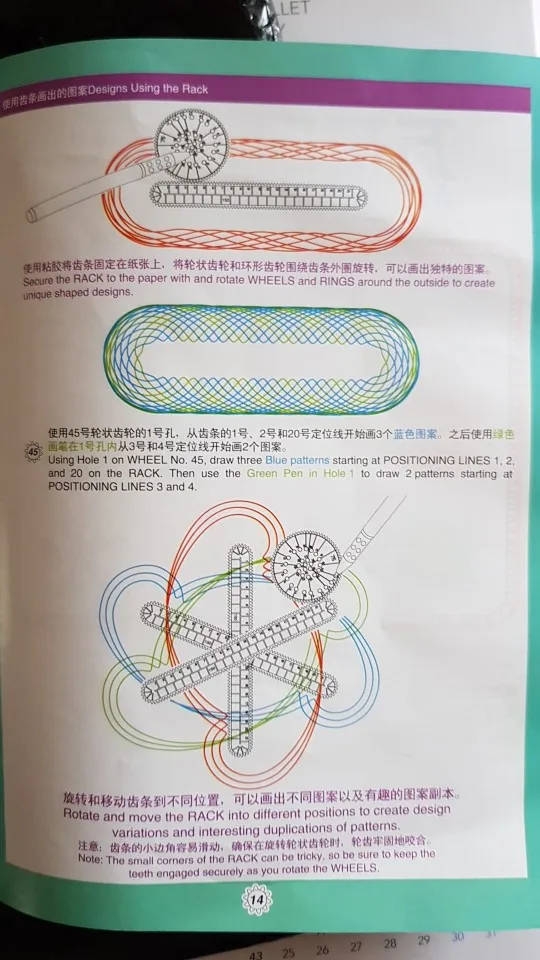 LET
使用齿条画出的图案Designs Using the Rack
使用粘胶将齿条固定在纸张上，将轮状齿轮和环形齿轮围绕齿条外圈旋转，可以画出独特的图案。
Secure the RACK to the paper with and rotate WHEELS and RINGS around the outside to create
unique shaped designs.
使用45号轮状齿轮的1号孔，从齿条的1号、2号和20号定位线开始画3个蓝色图案。之后使用绿色
画笔在1号孔内从3号和4号定位线开始画2个图案。
45
Using Hole 1 on WHEEL No. 45, draw three Blue patterns starting at POSITIONING LINES 1, 2,
and 20 on the RACK. Then use the Green Pen in Hole 1 to draw 2 patterns starting at
POSITIONING LINES 3 and 4.
旋转和移动齿条到不同位置，可以画出不同图案以及有趣的图案副本。
Rotate and move the RACK into different positions to create design
variations and interesting duplications of patterns.
注意：齿条的小边角容易滑动，确保在旋转轮状齿轮时，轮齿牢固地咬合。
Note: The small corners of the RACK can be tricky, so be sure to keep the
teeth engaged securely as you rotate the WHEELS.
14
43 25 26 27 28 29 30 31